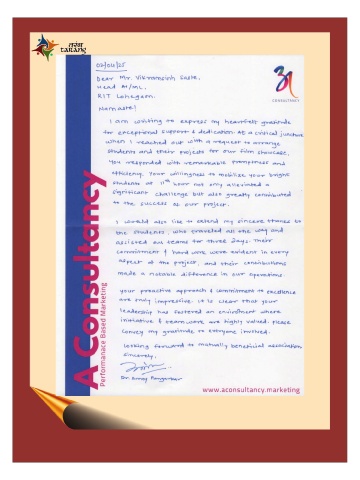 तरंग
TARANG
02/04/25
Dear Mr. Vikramsinh Saste,
Head AI/ML,
KIT Lohegaon.
Namaste!
CONSULTANCY
I am writing to express my heartfelt gratitude
for exceptional support & dedication. At a critical juncture
when I reached out with a request to arrange
students and their projects for our film showcase,
You responded with remarkable promptness and
efficiency. Your willingness to mobilize your bright
students at 11th hour not only alleviated a
significant challenge but also greatly contributed
to the success of our project.
I would also like to extend my sincere thanks to
the students, who traveled all the way and
assisted our teams for three days. Their
commitment & hard work were evident in every
aspect of the project, and their contributions
made a notable difference in our operations
your proactive approach & commitment to excellence
are truly impressive. It is clear that your
leadership has fostered an enviroment where
initiative & teamwork are highly valued. Please
convey my gratitude to everyone involved.
Looking forward to mutually beneficial association
Sincerely,
Dr.
A Consultancy
Performanace Based Marketing
www.aconsultancy.marketing